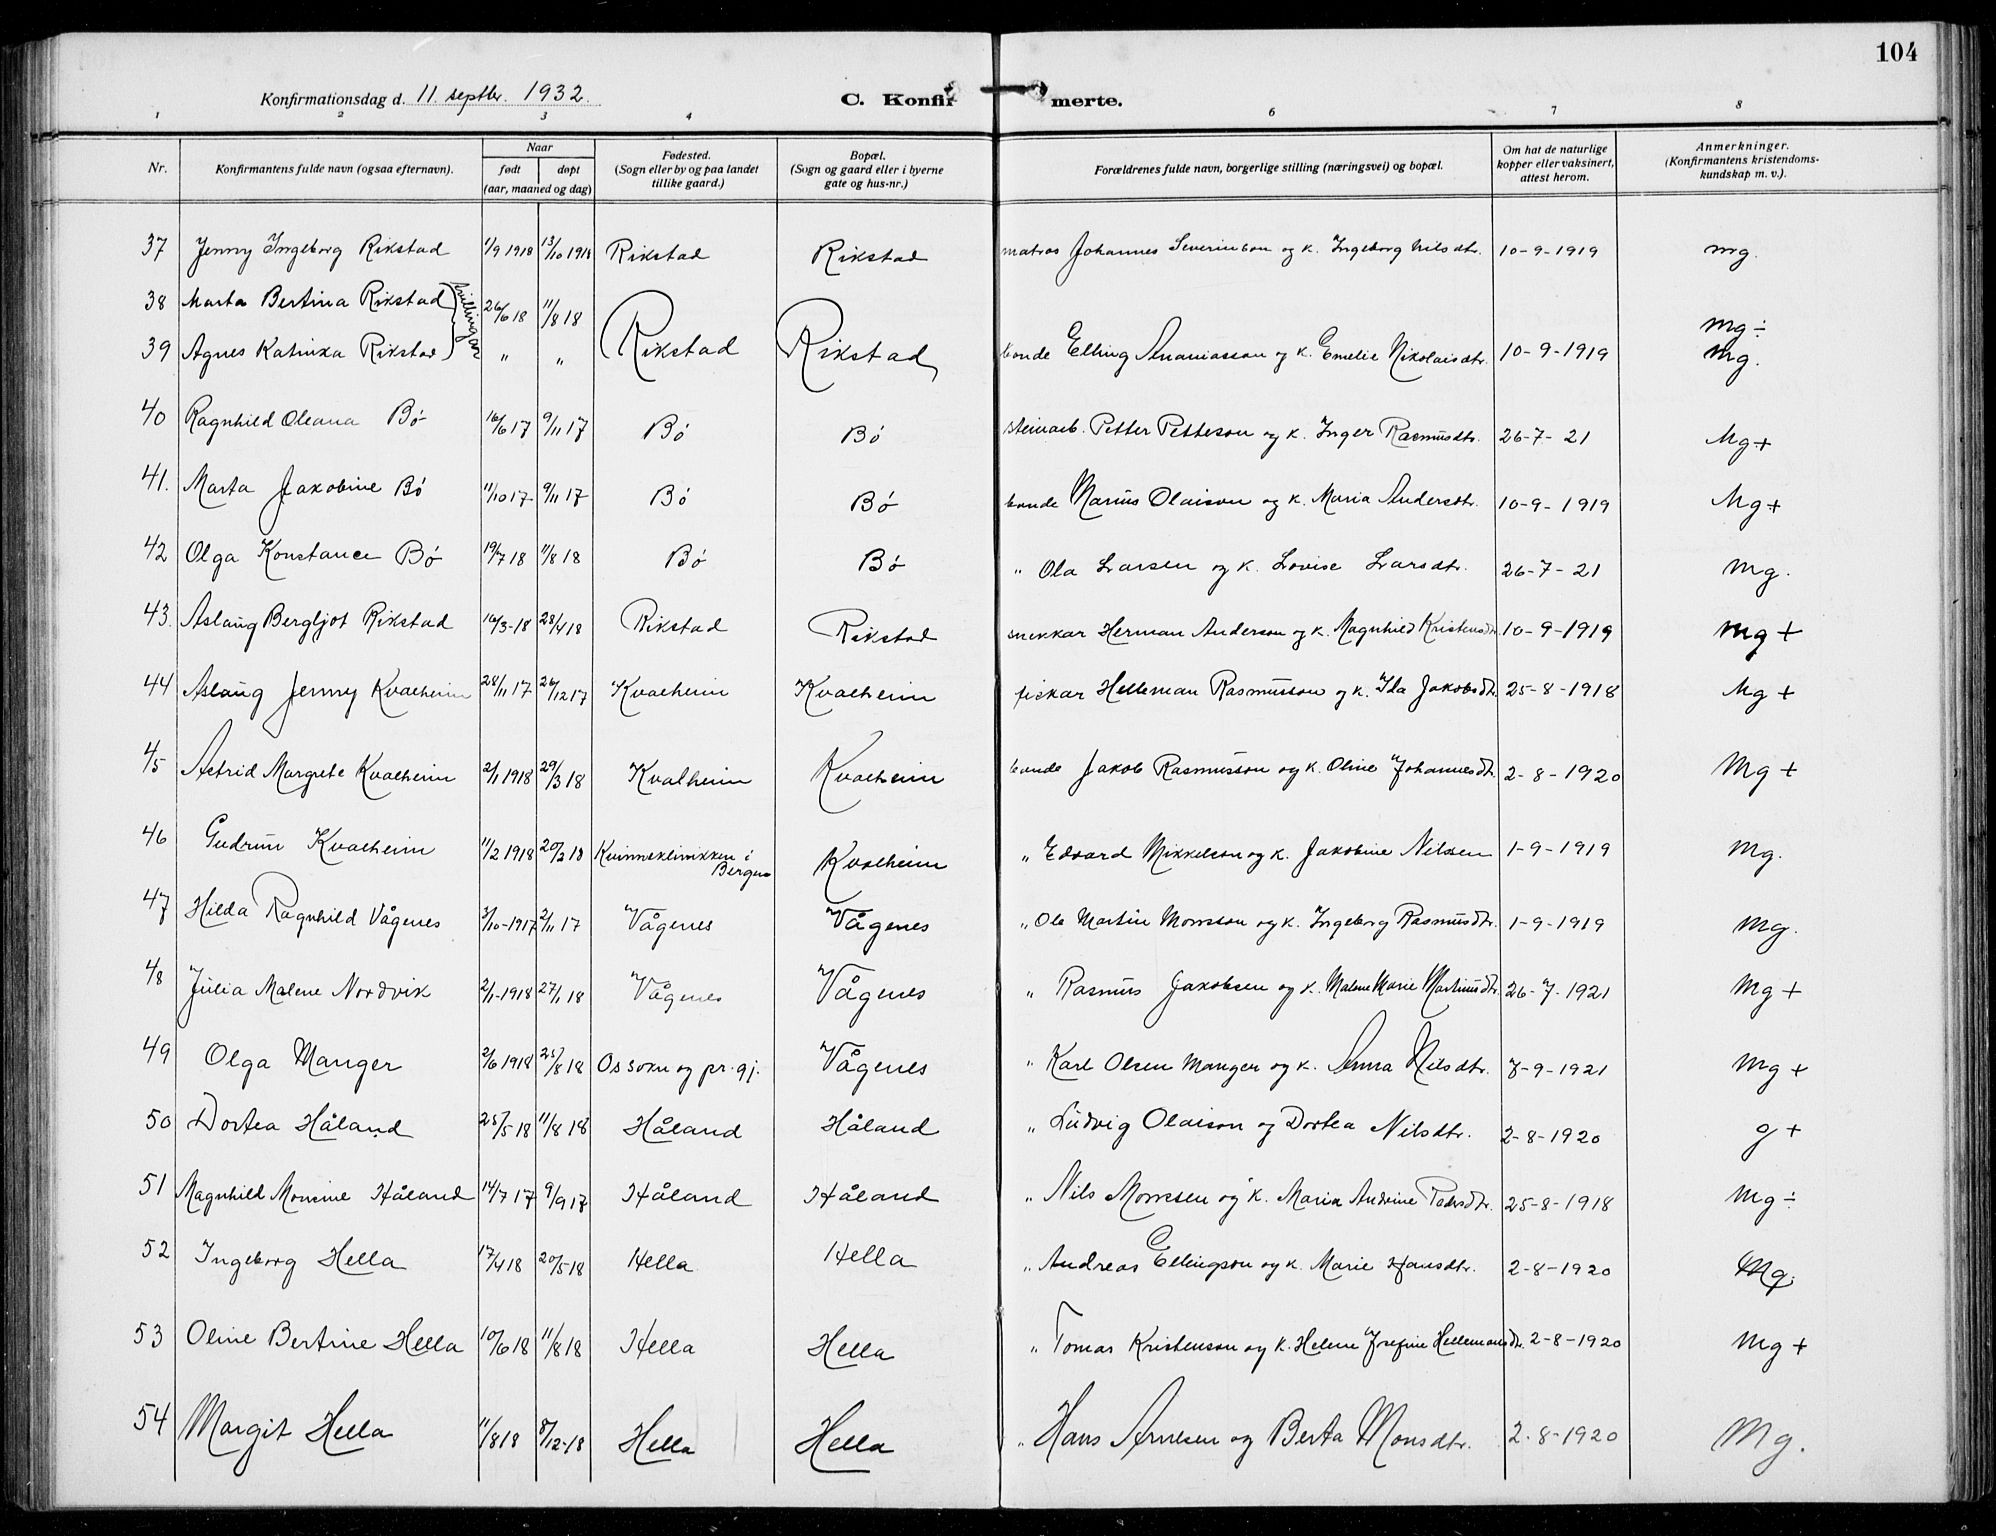 104
Konfirmationsdag d. 11. septbr. 1932.
C. Konfirmerte.
1 2 3 4 6 7 8
Nr. | Konfirmantens fulde navn (ogsaa efternavn). | Naar født døpt (aar, maaned og dag) | Fødested. (Sogn eller by og paa landet tillike gaard.) | Bopæl. (Sogn og gaard eller i byerne gate og hus-nr.) | Forældrenes fulde navn, borgerlige stilling (næringsvei) og bopæl. | Om hat de naturlige kopper eller vaksinert, attest herom. | Anmerkninger. (Konfirmantens kristendomskundskap m. v.).
37 Jenny Ingeborg Rikstad 1/9 1918 13/10 1918 Rikstad Rikstad matros Johannes Severinson og k. Ingeborg Nilsdtr. 10-9-1919 mg.
38 Marta Bertina Rikstad tvillingar 26/6 18 11/8 18 mg÷
39 Agnes Katinka Rikstad " " Rikstad Rikstad bonde Elling Ananiasson og k. Emelie Nikolaisdtr. 10-9-1919 Mg.
40 Ragnhild Oleana Bø 16/6 17 9/11 17 Bø Bø steinarb. Petter Petteson og k. Inger Rasmusdtr. 26-7-21 Mg+
41. Marta Jakobine Bø 11/10 17 9/11 17 Bø Bø bonde Marius Olaison og k. Maria Andersdtr. 10-9-1919 Mg+
42 Olga Konstance Bø 19/7 18 11/8 18 Bø Bø " Ola Larsen og k. Lovise Larsdtr. 26-7-21 Mg.
43. Aslaug Bergljot Rikstad 16/3-18 28/4 18 Rikstad Rikstad snekkar Herman Anderson og k. Magnhild Kristensdtr. 10-9-1919 Mg +
44 Aslaug Jenny Kvalheim 28/11 17 26/12 17 Kvalheim Kvalheim fiskar Helleman Rasmusson og k. Ida Jakobsdtr. 25-8-1918 Mg +
45 Astrid Margrete Kvalheim 2/1 1918 29/3 18 Kvalheim Kvalheim bonde Jakob Rasmusson og k. Oline Johannesdtr. 2-8-1920 Mg +
46 Gudrun Kvalheim 11/2 1918 20/2 18 Kvinneklinikken i Bergen Kvalheim " Edvard Mikkelson og k. Jakobine Nilssen 1-9-1919 Mg.
47 Hilda Ragnhild Vågenes 3/10-1917 2/11 17 Vågenes Vågenes " Ole Martin Monsson og k. Ingeborg Rasmusdtr. 1-9-1919 Mg.
48 Julia Malene Nordvik 2/1-1918 27/1 18 Vågenes Vågenes " Rasmus Jakobsen og k. Malene Marie Martinusdtr. 26-7-1921 Mg +
49 Olga Manger 2/6 1918 25/8 18 Os sokn og pr.gj. Vågenes " Karl Olsen Manger og k. Anna Nilsdtr. 7-9-1921 Mg +
50 Dortea Håland 25/5 18 11/8 18 Håland Håland " Ludvig Olaison og Dortea Nilsdtr. 2-8-1920 g +
51 Magnhild Monsine Håland 14/7 17 9/9 17 Håland Håland " Nils Monsen og k. Maria Andrine Pedersdtr. 25-8-1918 Mg÷
52 Ingeborg Hella 17/4 18 20/5 18 Hella Hella " Andreas Ellingson og k. Marie Hansdtr. 2-8-1920 Mg.
53 Oline Bertine Hella 10/6 18 11/8 18 Hella Hella " Tomas Kristenson og k. Helene Josefine Hellemansdtr. 2-8-1920 Mg +
54 Margit Hella 11/8 18 8/12-18 Hella Hella " Hans Arnesen og Berta Monsdtr. 2-8-1920 Mg.